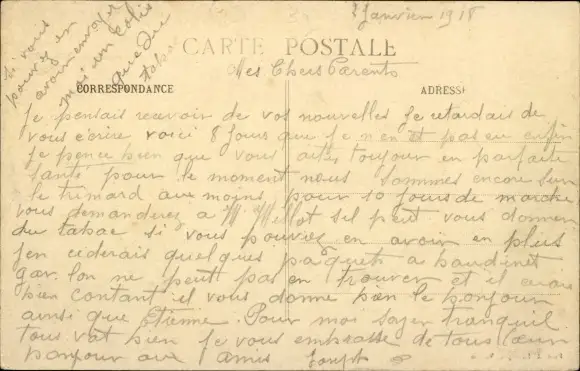 Janvier 1918
si vous
pouvez en
avoir envoyer
moi un colis
que du
tabac
CARTE POSTALE
Mes Chers Parents
CORRESPONDANCE
ADRESSE
Je pensais recevoir de vos nouvelles Je retardais de
vous écrire voici 8 Jours que Je n'en et pas eu enfin
Je pence bien que vous aites toujour en parfaite
santé pour le moment nous sommes encore sur
le trimard au moins pour 10 Jours de marche
vous demanderez a M. Mellot sil peut vous donner
du tabac si vous pouviez en avoir en plus
Jen cederais quelques paquets a baudinet
car lon ne peut pas en trouver et il serais
bien contant il vous donne bien le bonjour
ainsi que Etienne Pour moi soyer tranquil
tous vat bien Je vous embrasse de tous cœur
bonjour aux amis Joseph